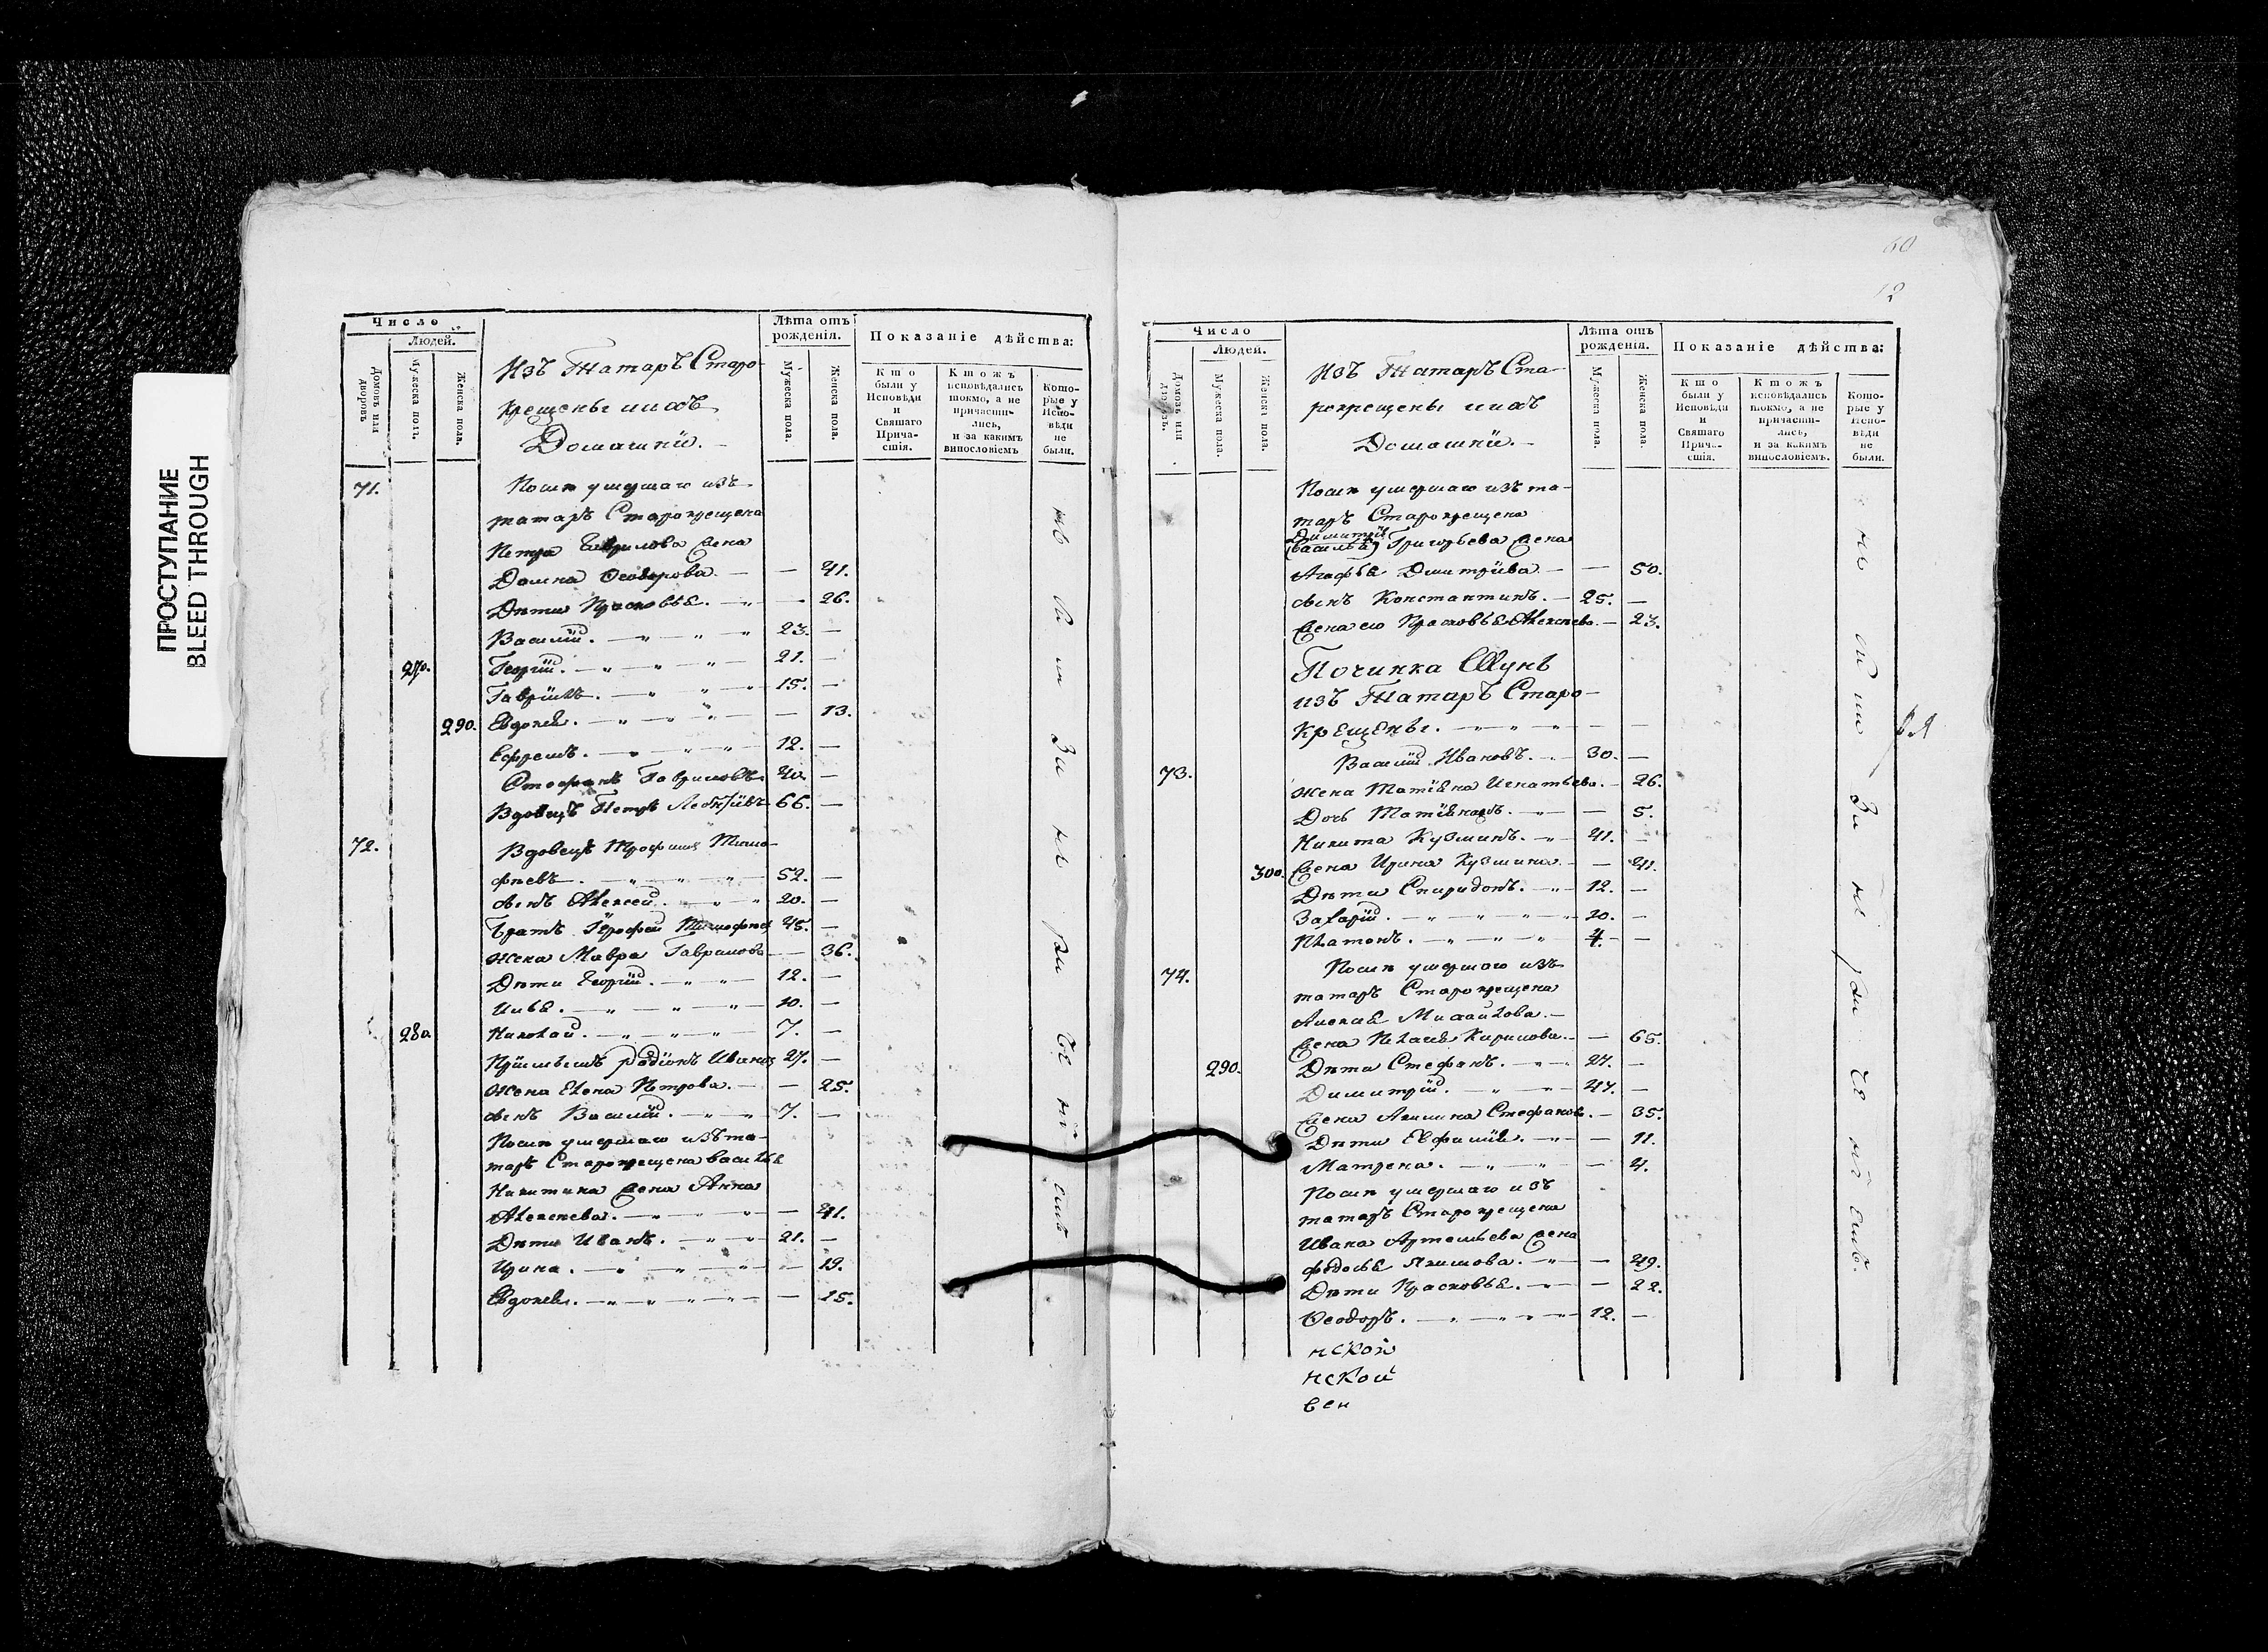 ПРОСТУПАНИЕ
BLEED THROUGH
Число
Людей.
Домовъ или дворовъ.
Мужеска полъ.
Женска пола.
Изъ Татаръ Старо-
крещены ихъ
Домашнїи.
Лѣта отъ рожденія.
Мужеска пола.
Женска пола.
Показаніе дѣйства:
Кто были у Исповѣди и Святаго Причастія.
Ктожъ исповѣдались токмо, а не причастились, и за какимъ винословіемъ
Которые у Исповѣди не были.
71. Послѣ умершаго изъ
татаръ Старокрещена
Петра Гаврилова жена
Домна Ѳеодорова. — — 41.
Дѣти Прасковья. — — 26.
Василїй. — 23. —
270. Георгїй. — 21. —
Гаврїилъ. — 15. —
290. Евдокея. — — 13.
Ефремъ. — 12. —
Стефанъ Гавриловъ 40. —
Вдовецъ Петръ Леонтїевъ 66. —
72. Вдовецъ Трофимъ Тимо-
фѣевъ. — 52. —
сынъ Алексей. — 20. —
братъ Ерофей Тимофѣев 45. —
жена Мавра Гаврилова — 36.
Дѣти Георгїй. — 12. —
Илья. — 10. —
280 Николай. — 7. —
Прїимышъ Родїонъ Иванов 27. —
жена Елена Петрова. — — 25.
сынъ Василїй. — 7. —
Послѣ умершаго изъ та-
таръ Старокрещена Василья
Никитина жена Анна
Алексѣева. — — 41.
Дѣти Иванъ. — 21. —
Ирина. — — 19.
Евдокея. — — 15.
60
12
Число
Людей.
Домовъ или дворовъ.
Мужеска пола.
Женска пола.
Изъ Татаръ Ста-
рокрещены ихъ
Домашнїи.
Лѣта отъ рожденія.
Мужеска пола.
Женска пола.
Показаніе дѣйства:
Кто были у Исповѣди и Святаго Причастія.
Ктожъ исповѣдались токмо, а не причастились, и за какимъ винословіемъ.
Которые у Исповѣди не были.
Послѣ умершаго изъ та-
таръ Старокрещена
Димитрїя
(Василья) Григорьева жена
Агафья Димитрїева — — 50.
сынъ Константинъ. — 25. —
жена его Прасковья Алексѣева. — 23.
Починка Шунь
изъ Татаръ Старо-
крещены. — — —
73. Василїй Ивановъ. — 30. —
жена Матїяна Игнатьева. — 26.
Никита Кузминъ. — 41. —
300. жена Ирина Кузмина — — 41.
Дѣти Спиридонъ. — 12. —
Захарїй. — 10. —
Платонъ. — 4. —
74. Послѣ умершаго изъ
татаръ Старокрещена
Алексея Михайлова. —
жена Пелагея Кирилова. — — 65.
290. Дѣти Стефанъ. — 27. —
Димитрїй. — 47. —
жена Акилина Стефанов. — 35.
Дѣти Евфимїя. — — 11.
Матрена. — — 4.
Послѣ умершаго изъ
татаръ Старокрещена
Ивана Артемьева жена
Федосья Якимова. — — 49.
Дѣти Прасковья. — — 22.
Ѳеодоръ. — 12. —
нской
нской
вен